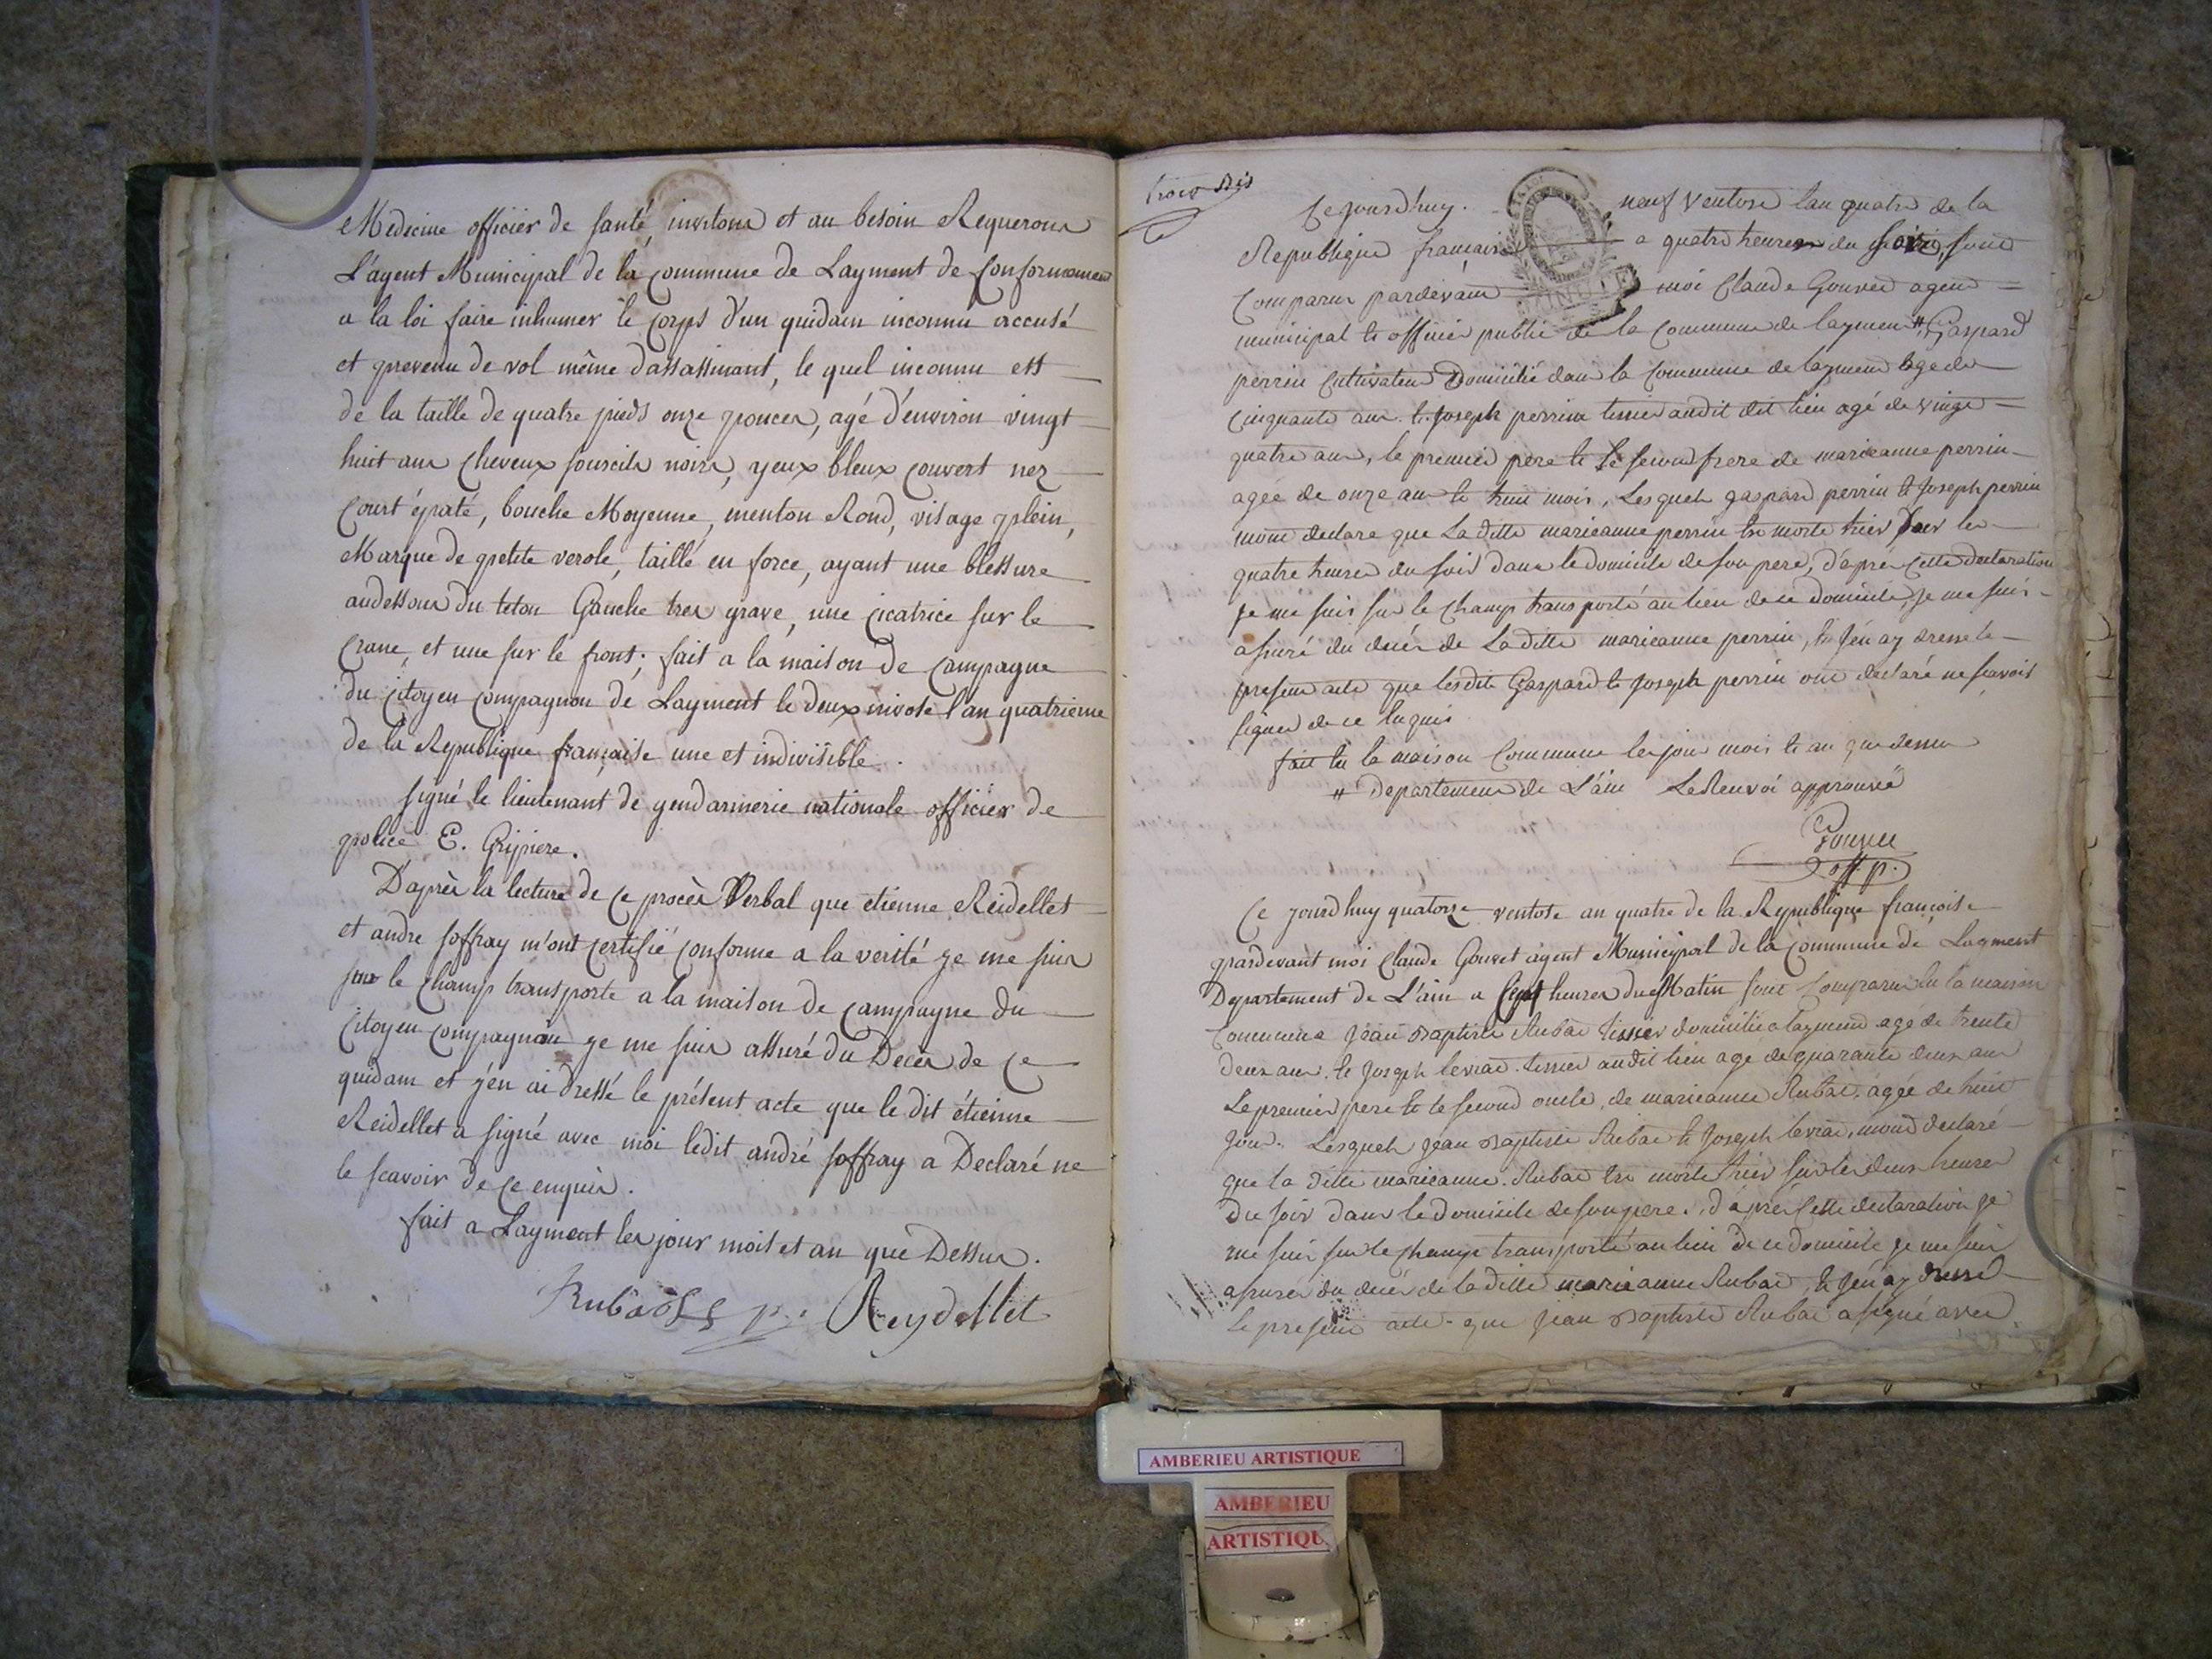 Medecine officier de santé, invitons et au besoin Requerons
L'agent Municipal de la commune de Layment de Conformement
a la loi faire inhumer le corps d'un quidam inconnu accusé
et prevenu de vol même d'assassinant, le quel inconnu est
de la taille de quatre pieds onze pouces, agé d'environ vingt
huit ans cheveux sourcils noirs, yeux bleux couvert nez
court épaté, bouche Moyenne, menton Rond, visage plein,
Marque de petite verole, taillé en force, ayant une blessure
audessous du teton Gauche tres grave, une cicatrice sur le
crane, et une sur le front; fait a la maison de campagne
du citoyen compagnon de Layment le deux nivose l'an quatrieme
de la Republique française une et indivisible.
signé le lieutenant de gendarmerie nationale officier de
police E.
D'après la lecture de ce procès Verbal que etienne Reidellet
et andre soffray m'ont certifié conforme a la verité je me suis
sur le champ transporte a la maison de campagne du
citoyen compagnon je me suis assuré du Decès de ce
quidam et j'en ai dressé le présent acte que le dit étienne
Reidellet a signé avec moi ledit andré soffray a Declaré ne
le scavoir de ce enquis.
fait a Layment les jour mois et an que Dessus.
Rubat off p. Reydellet
trois
Ce jourd'huy neuf ventose l'an quatre de la
Republique française a quatre heures du soir, sont
comparus pardevant moi Claude Gouvet agent
municipal et officier public de la commune de layment # Gaspard
perrin cultivateur Domicilié dans la commune de layment agé de
cinquante ans et Joseph perrin tissier audit dit lieu agé de vingt
quatre ans, le premier pere et le second frere de marieanne perrin
agée de onze ans et huit mois, Lesquels gaspard perrin et Joseph perrin
mont declare que La ditte marieanne perrin est morte hier sur les
quatre heures du soir dans le domicile de son pere, d'après cette declaration
je me suis sur le champ transporté au lieu de ce domicile, je me suis
assuré du decès de Laditte marieanne perrin, et j'en ay dressé le
present acte que lesdits Gaspard et Joseph perrin ont declaré ne scavoir
signer de ce enquis
fait en la maison Commune les jour mois et an que dessus
# Departement de L'ain Le Renvoi approuvé
Gouvet
off. p.
Ce jourd'huy quatorze ventose an quatre de la Republique françoise
pardevant moi Claude Gouvet agent Municipal de la commune de Layment
Departement de L'ain a sept heures du Matin sont comparus en la maison
commune Jean Baptiste Rubat tissier domicilié a layment agé de trente
deux ans. et Joseph levrat tissier audit lieu agé de quarante deux ans
Le premier pere et le second oncle, de marieanne Rubat agée de huit
jours. Lesquels Jean Baptiste Rubat et Joseph levrat, mont declaré
que la ditte marieanne Rubat est morte hier sur les deux heures
du soir dans le domicile de son pere, d'après cette declaration je
me suis sur le champ transporté au lieu de ce domicile je me suis
assuré du decès de laditte marieanne Rubat, et j'en ay dressé
le present acte que Jean Baptiste Rubat a signé avec
AMBERIEU ARTISTIQUE
AMBERIEU
ARTISTIQU